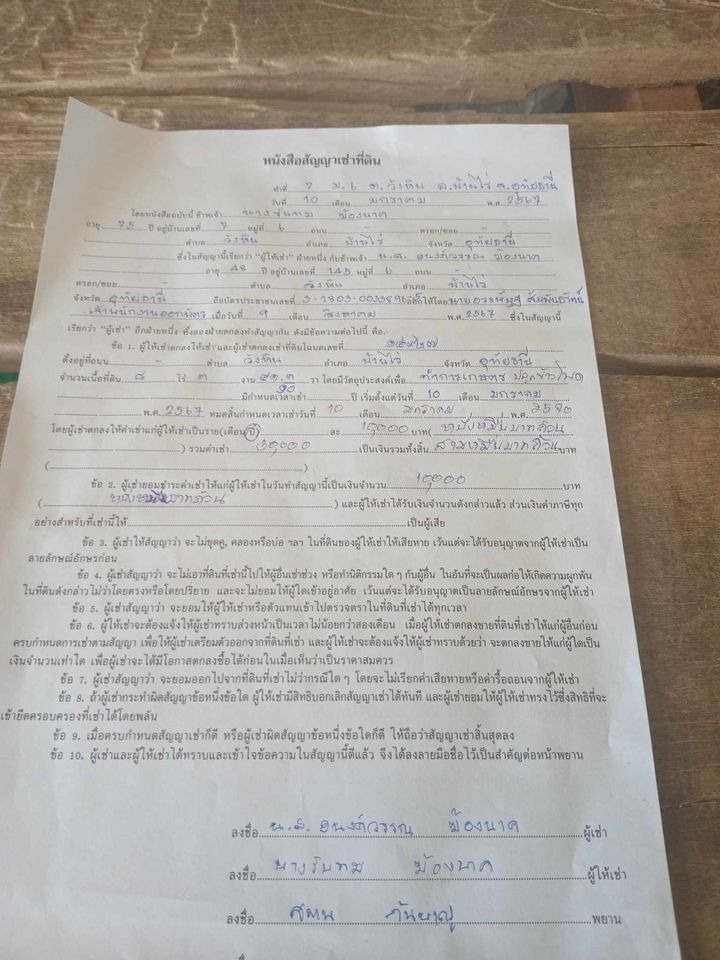 หนังสือสัญญาเช่าที่ดิน
ทำที่ 7 ม.6 ต.วังหิน อ.บ้านไร่ จ.อุทัยธานี
วันที่ 10 เดือน มกราคม พ.ศ. 2567
โดยหนังสือฉบับนี้ ข้าพเจ้า นางจันทม ฆ้องนาค
อายุ 75 ปี อยู่บ้านเลขที่ 7 หมู่ที่ 6 ถนน ตรอก/ซอย
ตำบล วังหิน อำเภอ บ้านไร่ จังหวัด อุทัยธานี
ซึ่งในสัญญานี้เรียกว่า "ผู้ให้เช่า" ฝ่ายหนึ่ง กับข้าพเจ้า น.ส. อนงค์วรรณ ฆ้องนาค
อายุ 48 ปี อยู่บ้านเลขที่ 145 หมู่ที่ 6 ถนน
ตรอก/ซอย ตำบล วังหิน อำเภอ บ้านไร่
จังหวัด อุทัยธานี ถือบัตรประชาชนเลขที่ ออกให้โดย
เจ้าพนักงานออกบัตร เมื่อวันที่ 9 เดือน สิงหาคม พ.ศ. 2567 ซึ่งในสัญญานี้
เรียกว่า "ผู้เช่า" อีกฝ่ายหนึ่ง ทั้งสองฝ่ายตกลงทำสัญญากัน ดังมีข้อความต่อไปนี้ คือ.-
ข้อ 1. ผู้ให้เช่าตกลงให้เช่า และผู้เช่าตกลงเช่าที่ดินโฉนดเลขที่ ๑๕๓๒๗
ตั้งอยู่ที่ถนน - ตำบล วังหิน อำเภอ บ้านไร่ จังหวัด อุทัยธานี
จำนวนเนื้อที่ดิน ๘ ไร่ ๓ งาน ๕๑.๓ วา โดยมีวัตถุประสงค์เพื่อ ทำการเกษตร ปลูกข้าวโพด
มีกำหนดเวลาเช่า ปี เริ่มตั้งแต่วันที่ 10 เดือน มกราคม
พ.ศ. 2567 หมดสิ้นกำหนดเวลาเช่าวันที่ 10 เดือน มกราคม พ.ศ. 2570
โดยผู้เช่าตกลงให้ค่าเช่าแก่ผู้ให้เช่าเป็นราย(เดือน/ปี) ละ 10,000 บาท( หนึ่งหมื่นบาทถ้วน
) รวมค่าเช่า 30,000 เป็นเงินรวมทั้งสิ้น สามหมื่นบาทถ้วน บาท
( )
ข้อ 2. ผู้เช่ายอมชำระค่าเช่าให้แก่ผู้ให้เช่าในวันทำสัญญานี้เป็นเงินจำนวน 10,000 บาท
( หนึ่งหมื่นบาทถ้วน ) และผู้ให้เช่าได้รับเงินจำนวนดังกล่าวแล้ว ส่วนเงินค่าภาษีทุก
อย่างสำหรับที่เช่านี้ให้ เป็นผู้เสีย
ข้อ 3. ผู้เช่าให้สัญญาว่า จะไม่ขุดคู, คลองหรือบ่อ ฯลฯ ในที่ดินของผู้ให้เช่าให้เสียหาย เว้นแต่จะได้รับอนุญาตจากผู้ให้เช่าเป็น
ลายลักษณ์อักษรก่อน
ข้อ 4. ผู้เช่าสัญญาว่า จะไม่เอาที่ดินที่เช่านี้ไปให้ผู้อื่นเช่าช่วง หรือทำนิติกรรมใด ๆ กับผู้อื่น ในอันที่จะเป็นผลก่อให้เกิดความผูกพัน
ในที่ดินดังกล่าวไม่ว่าโดยตรงหรือโดยปริยาย และจะไม่ยอมให้ผู้ใดเข้าอยู่อาศัย เว้นแต่จะได้รับอนุญาตเป็นลายลักษณ์อักษรจากผู้ให้เช่า
ข้อ 5. ผู้เช่าสัญญาว่า จะยอมให้ผู้ให้เช่าหรือตัวแทนเข้าไปตรวจตราในที่ดินที่เช่าได้ทุกเวลา
ข้อ 6. ผู้ให้เช่าจะต้องแจ้งให้ผู้เช่าทราบล่วงหน้าเป็นเวลาไม่น้อยกว่าสองเดือน เมื่อผู้ให้เช่าตกลงขายที่ดินที่เช่าให้แก่ผู้อื่นก่อน
ครบกำหนดการเช่าตามสัญญา เพื่อให้ผู้เช่าเตรียมตัวออกจากที่ดินที่เช่า และผู้ให้เช่าจะต้องแจ้งให้ผู้เช่าทราบด้วยว่า จะตกลงขายให้แก่ผู้ใดเป็น
เงินจำนวนเท่าใด เพื่อผู้เช่าจะได้มีโอกาสตกลงซื้อได้ก่อนในเมื่อเห็นว่าเป็นราคาสมควร
ข้อ 7. ผู้เช่าสัญญาว่า จะยอมออกไปจากที่ดินที่เช่าไม่ว่ากรณีใด ๆ โดยจะไม่เรียกค่าเสียหายหรือค่ารื้อถอนจากผู้ให้เช่า
ข้อ 8. ถ้าผู้เช่ากระทำผิดสัญญาข้อหนึ่งข้อใด ผู้ให้เช่ามีสิทธิบอกเลิกสัญญาเช่าได้ทันที และผู้เช่ายอมให้ผู้ให้เช่าทรงไว้ซึ่งสิทธิที่จะ
เข้ายึดครอบครองที่เช่าได้โดยพลัน
ข้อ 9. เมื่อครบกำหนดสัญญาเช่าก็ดี หรือผู้เช่าผิดสัญญาข้อหนึ่งข้อใดก็ดี ให้ถือว่าสัญญาเช่าสิ้นสุดลง
ข้อ 10. ผู้เช่าและผู้ให้เช่าได้ทราบและเข้าใจข้อความในสัญญานี้ดีแล้ว จึงได้ลงลายมือชื่อไว้เป็นสำคัญต่อหน้าพยาน
ลงชื่อ น.ส. อนงค์วรรณ ฆ้องนาค ผู้เช่า
ลงชื่อ นางจันทม ฆ้องนาค ผู้ให้เช่า
ลงชื่อ พยาน